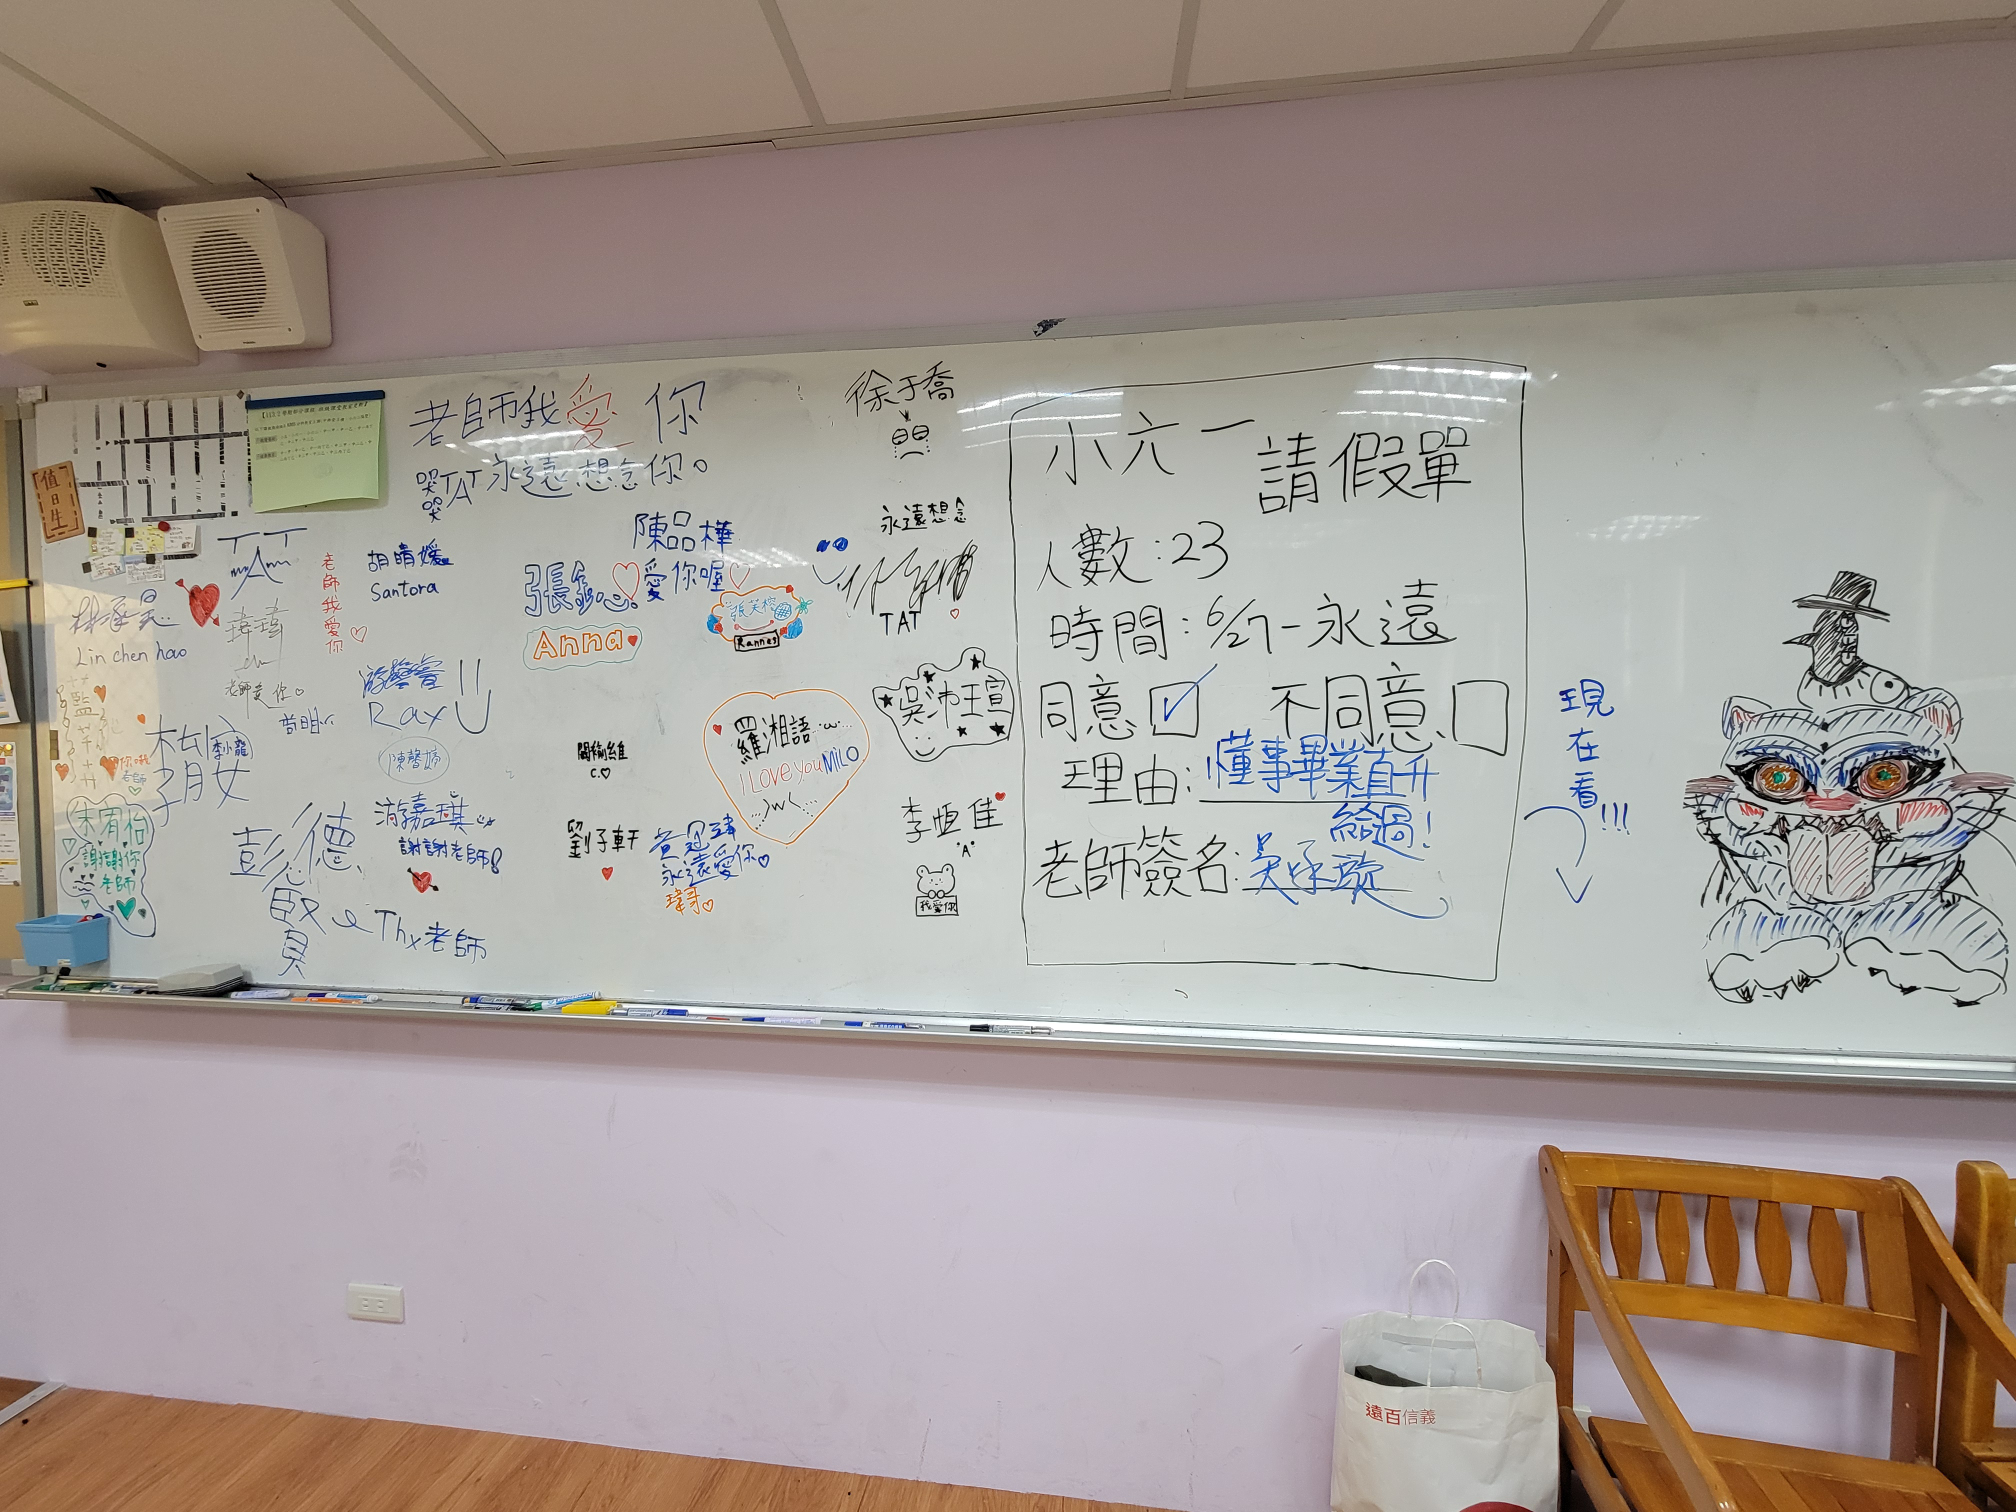 值日生
老師我愛你
哭哭TAT永遠想念你。
徐于喬
永遠想念
TAT
TAT
老師我愛你
胡晴媛
Santora
陳品樺
愛你喔
Anna
張芙榕
Rannes
Lin chen hao
老師愛你
游馨萱
Ray
陳馨婷
李小龍
謝謝你
老師
彭德賢
Thx老師
謝謝老師
劉子軒
永遠愛你
瑋哥
羅湘語
I Love you MILO
吳沛玨
李恆佳
"A"
我愛你
小六一
請假單
人數:23
時間:6/27-永遠
同意 不同意
理由:懂事畢業直升
給過!
老師簽名:
現在看!!!
遠百信義